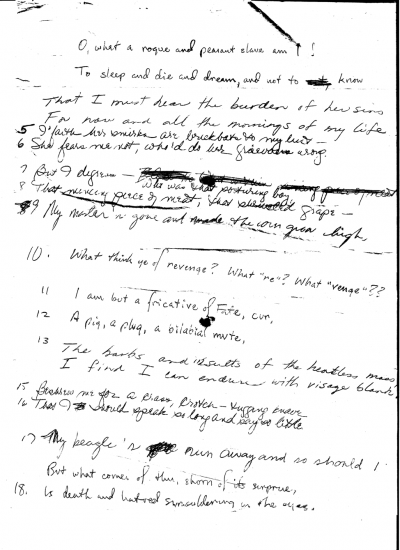 O, what a rogue and peasant slave am I!
To sleep and die and dream, and not to know
That I must bear the burden of her sins
For now and all the mornings of my life
5 I'faith her smirks are brickbats to my
6 She fears me not, who'd do her wrong
7 But I degree —
who was that posturing boy
8 That mincing piece of meat, that grape —
9 My master is gone and the corn grows high,
10. What think ye of revenge? What "re"? What "venge"??
11 I am but a fricative of Fate, cur,
12 A pig, a plug, a bilabial mute,
13 The barbs and insults of the heatless mass,
I find I can endure with visage blank.
15 Beshrew me for a
16 That I should speak so long and say so little
17 My beagle's run away and so should I
But what corner of this, shorn of surprise,
18. Is death and hatred smouldering in the eyes.